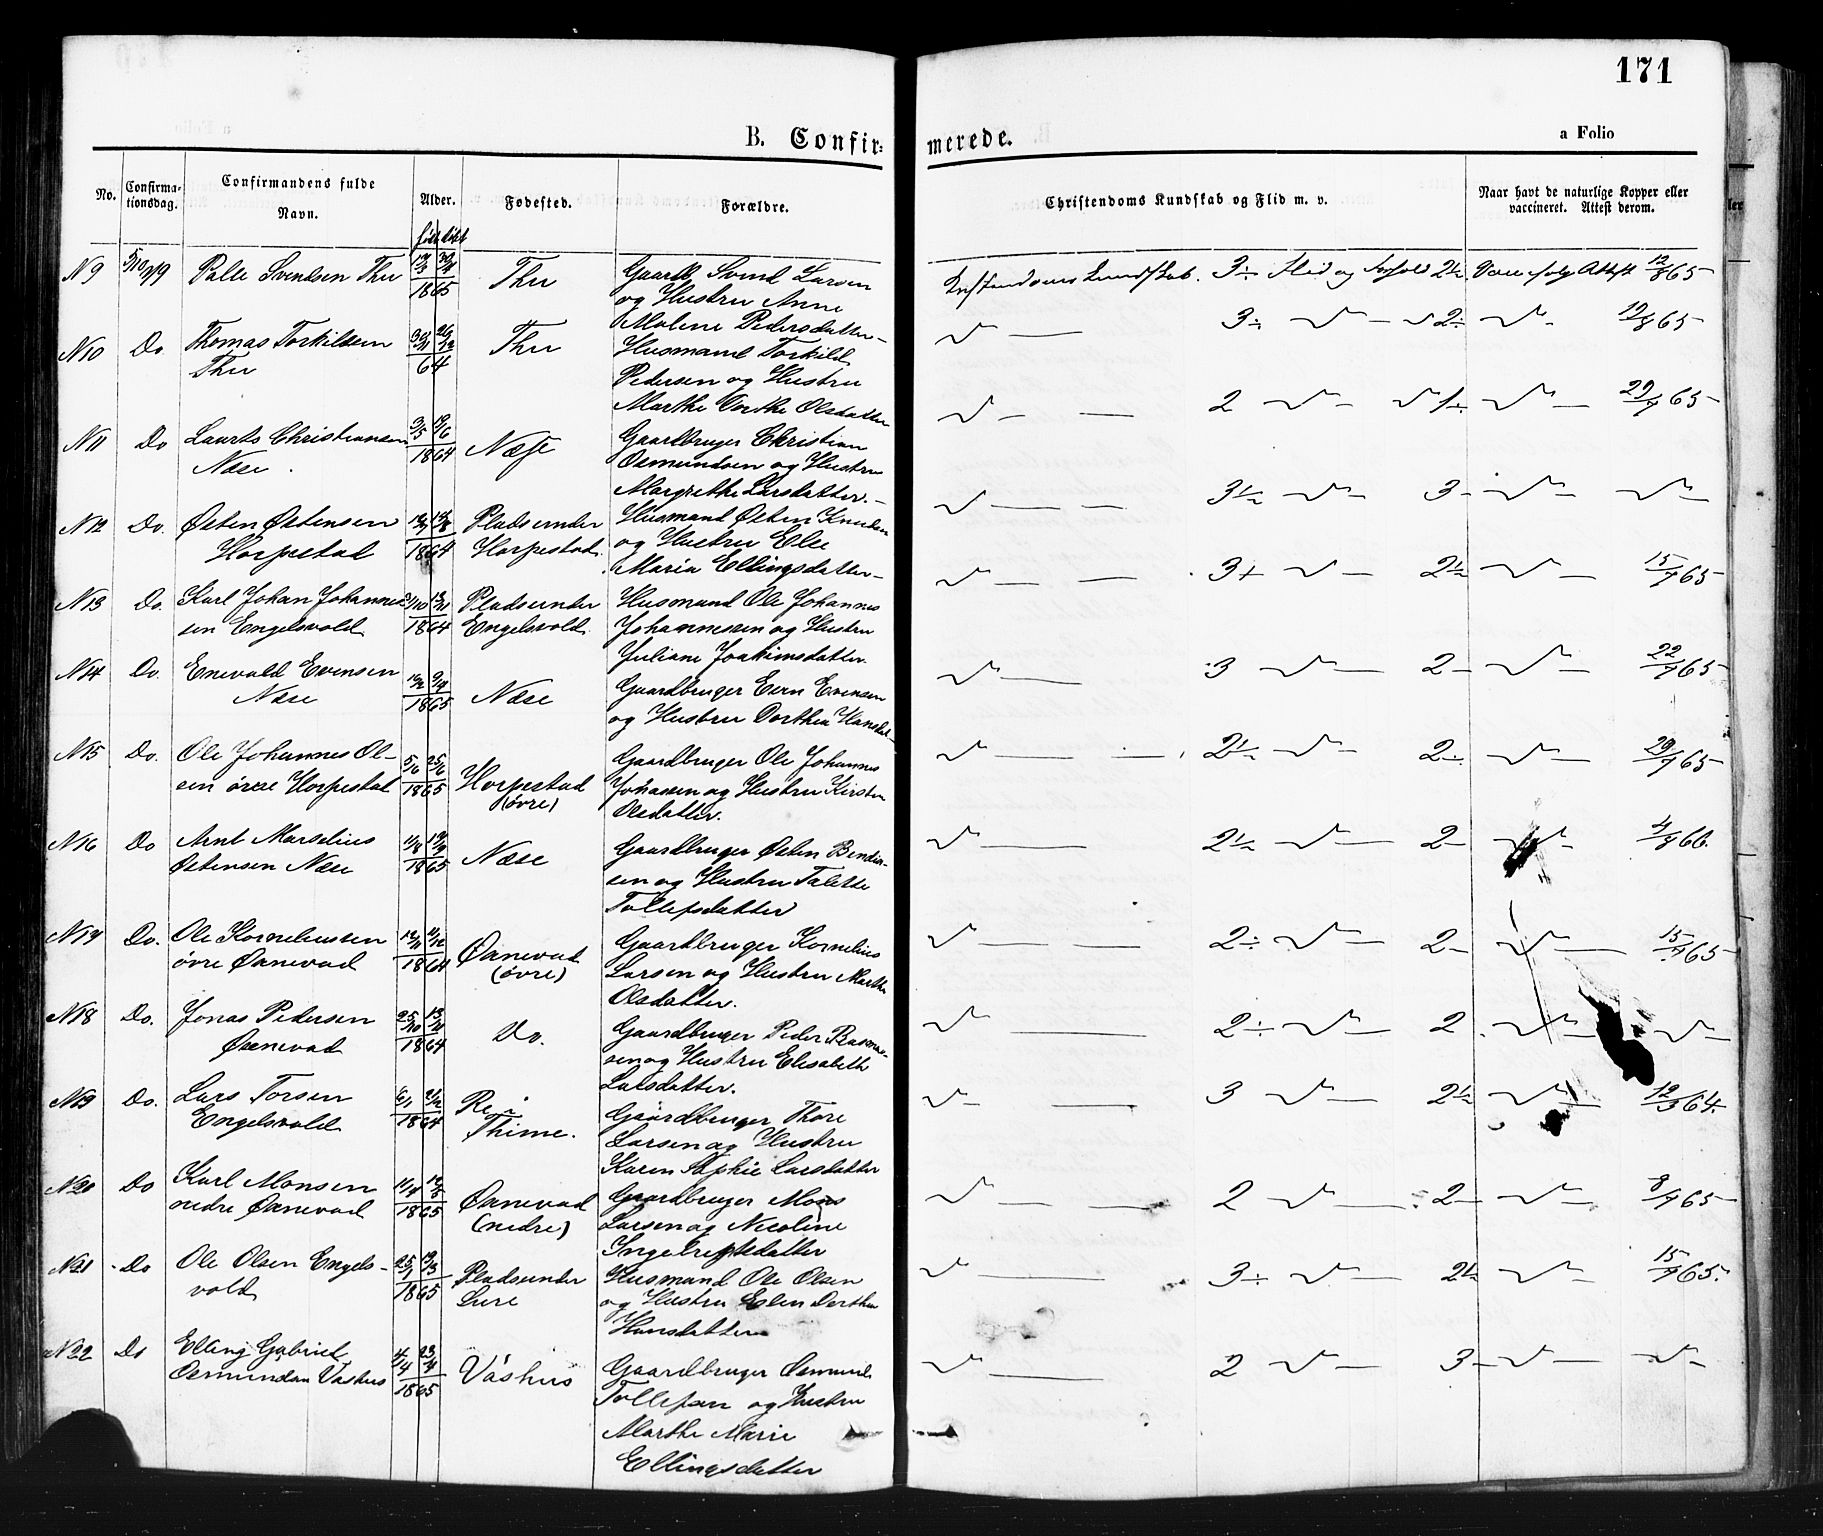 171
B. Confir-
merede.
a Folio
No.
Confirma-
tionsdag.
Confirmandens fulde
Navn.
Alder.
Fødested.
Forældre.
Christendoms Kundskab og Flid m. v.
Naar havt de naturlige Kopper eller
vaccineret. Attest derom.
født døbt
N 9 5/10 79 Palle Svendsen Thu 1865 Thu Gaardb. Svend Larsen
og Hustru Anne
Malene Pedersdatter
Christendoms Kundskab. 3÷ Flid og Forhold 2½ Vacc. ifølge Attest 12/8 65
N 10 Do Thomas Torkildsen
Thu
64 Thu Husmand Torkild
Pedersen og Hustru
Marthe Olsdatter
3÷ 2÷ 19/8 65
N 11 Do Laurts Christiansen
Næse
1864 Næse Gaardbruger Christian
Osmundsen og Hustru
Margrethe Larsdatter.
2 1÷ 29/7 65
N 12 Do. Østen Østensen
Horpestad
1864 Plads under
Horpestad.
Husmand Østen Knudsen
og Hustru Else
Maria Ellingsdatter
3½ 3
N 13 Do. Karl Johan Johannes-
sen Engelsvold
1864 Plads under
Engelsvold.
Husmand Ole Johannes
Johannessen og Hustru
Juliane Joakimsdatter.
3+ 2½ 15/7 65
N 14 Do. Enevald Evensen
Næse
1865 Næse Gaardbruger Even Evensen
og Hustru Dorthea Hansdat-
3 2 22/7 65
N 15 Do. Ole Johannes Ol-
sen øvre Horpestad
5/6 25/6
1865 Horpestad
(øvre)
Gaardbruger Ole Johannes
Johansen og Hustru Kirsten
Olsdatter.
2½ 2÷ 29/7 65
N 16 Do Arnt Marselius
Østensen Næse
1865 Næse Gaardbruger Østen Bendix-
sen og Hustru Talette
Tollefsdatter
2½ 2 4/8 66.
N 17 Do. Ole Korneliussen
øvre Øxnevad
1864 Øxnevad
(øvre)
Gaardbruger Kornelius
Larsen og Hustru Marthe
Olsdatter.
2÷ 2 15/7 65
N 18 Do. Jonas Pedersen
Øxnevad
25/10 13/11
1864 Do. Gaardbruger Peder Rasmus-
sen og Hustru Elisabeth
Larsdatter.
2÷ 2
N 19 Do. Lars Torsen
Engelsvold
1864 Re i
Thime.
Gaardbruger Thore
Larsen og Hustru
Karen Sophie Larsdatter
3 2½ 12/3 64.
N 20 Do Karl Monsen
nedre Øxnevad
1865 Øxnevad
(nedre)
Gaardbruger Mons
Larsen og Nicoline
Ingebretsdatter
2 2 8/7 65
N 21 Do Ole Olsen Engels-
vold
25/1 19/3
1865 Plads under
Lure
Husmand Ole Olsen
og Hustru Elen Dorthea
Hansdatter
3÷ 2½ 15/7 65.
N 22 Do Elling Gabriel
Osmundsen Vashus
1865 Våshus Gaardbruger Osmund
Tollefsen og Hustru
Marthe Marie
Ellingsdatter
2 3